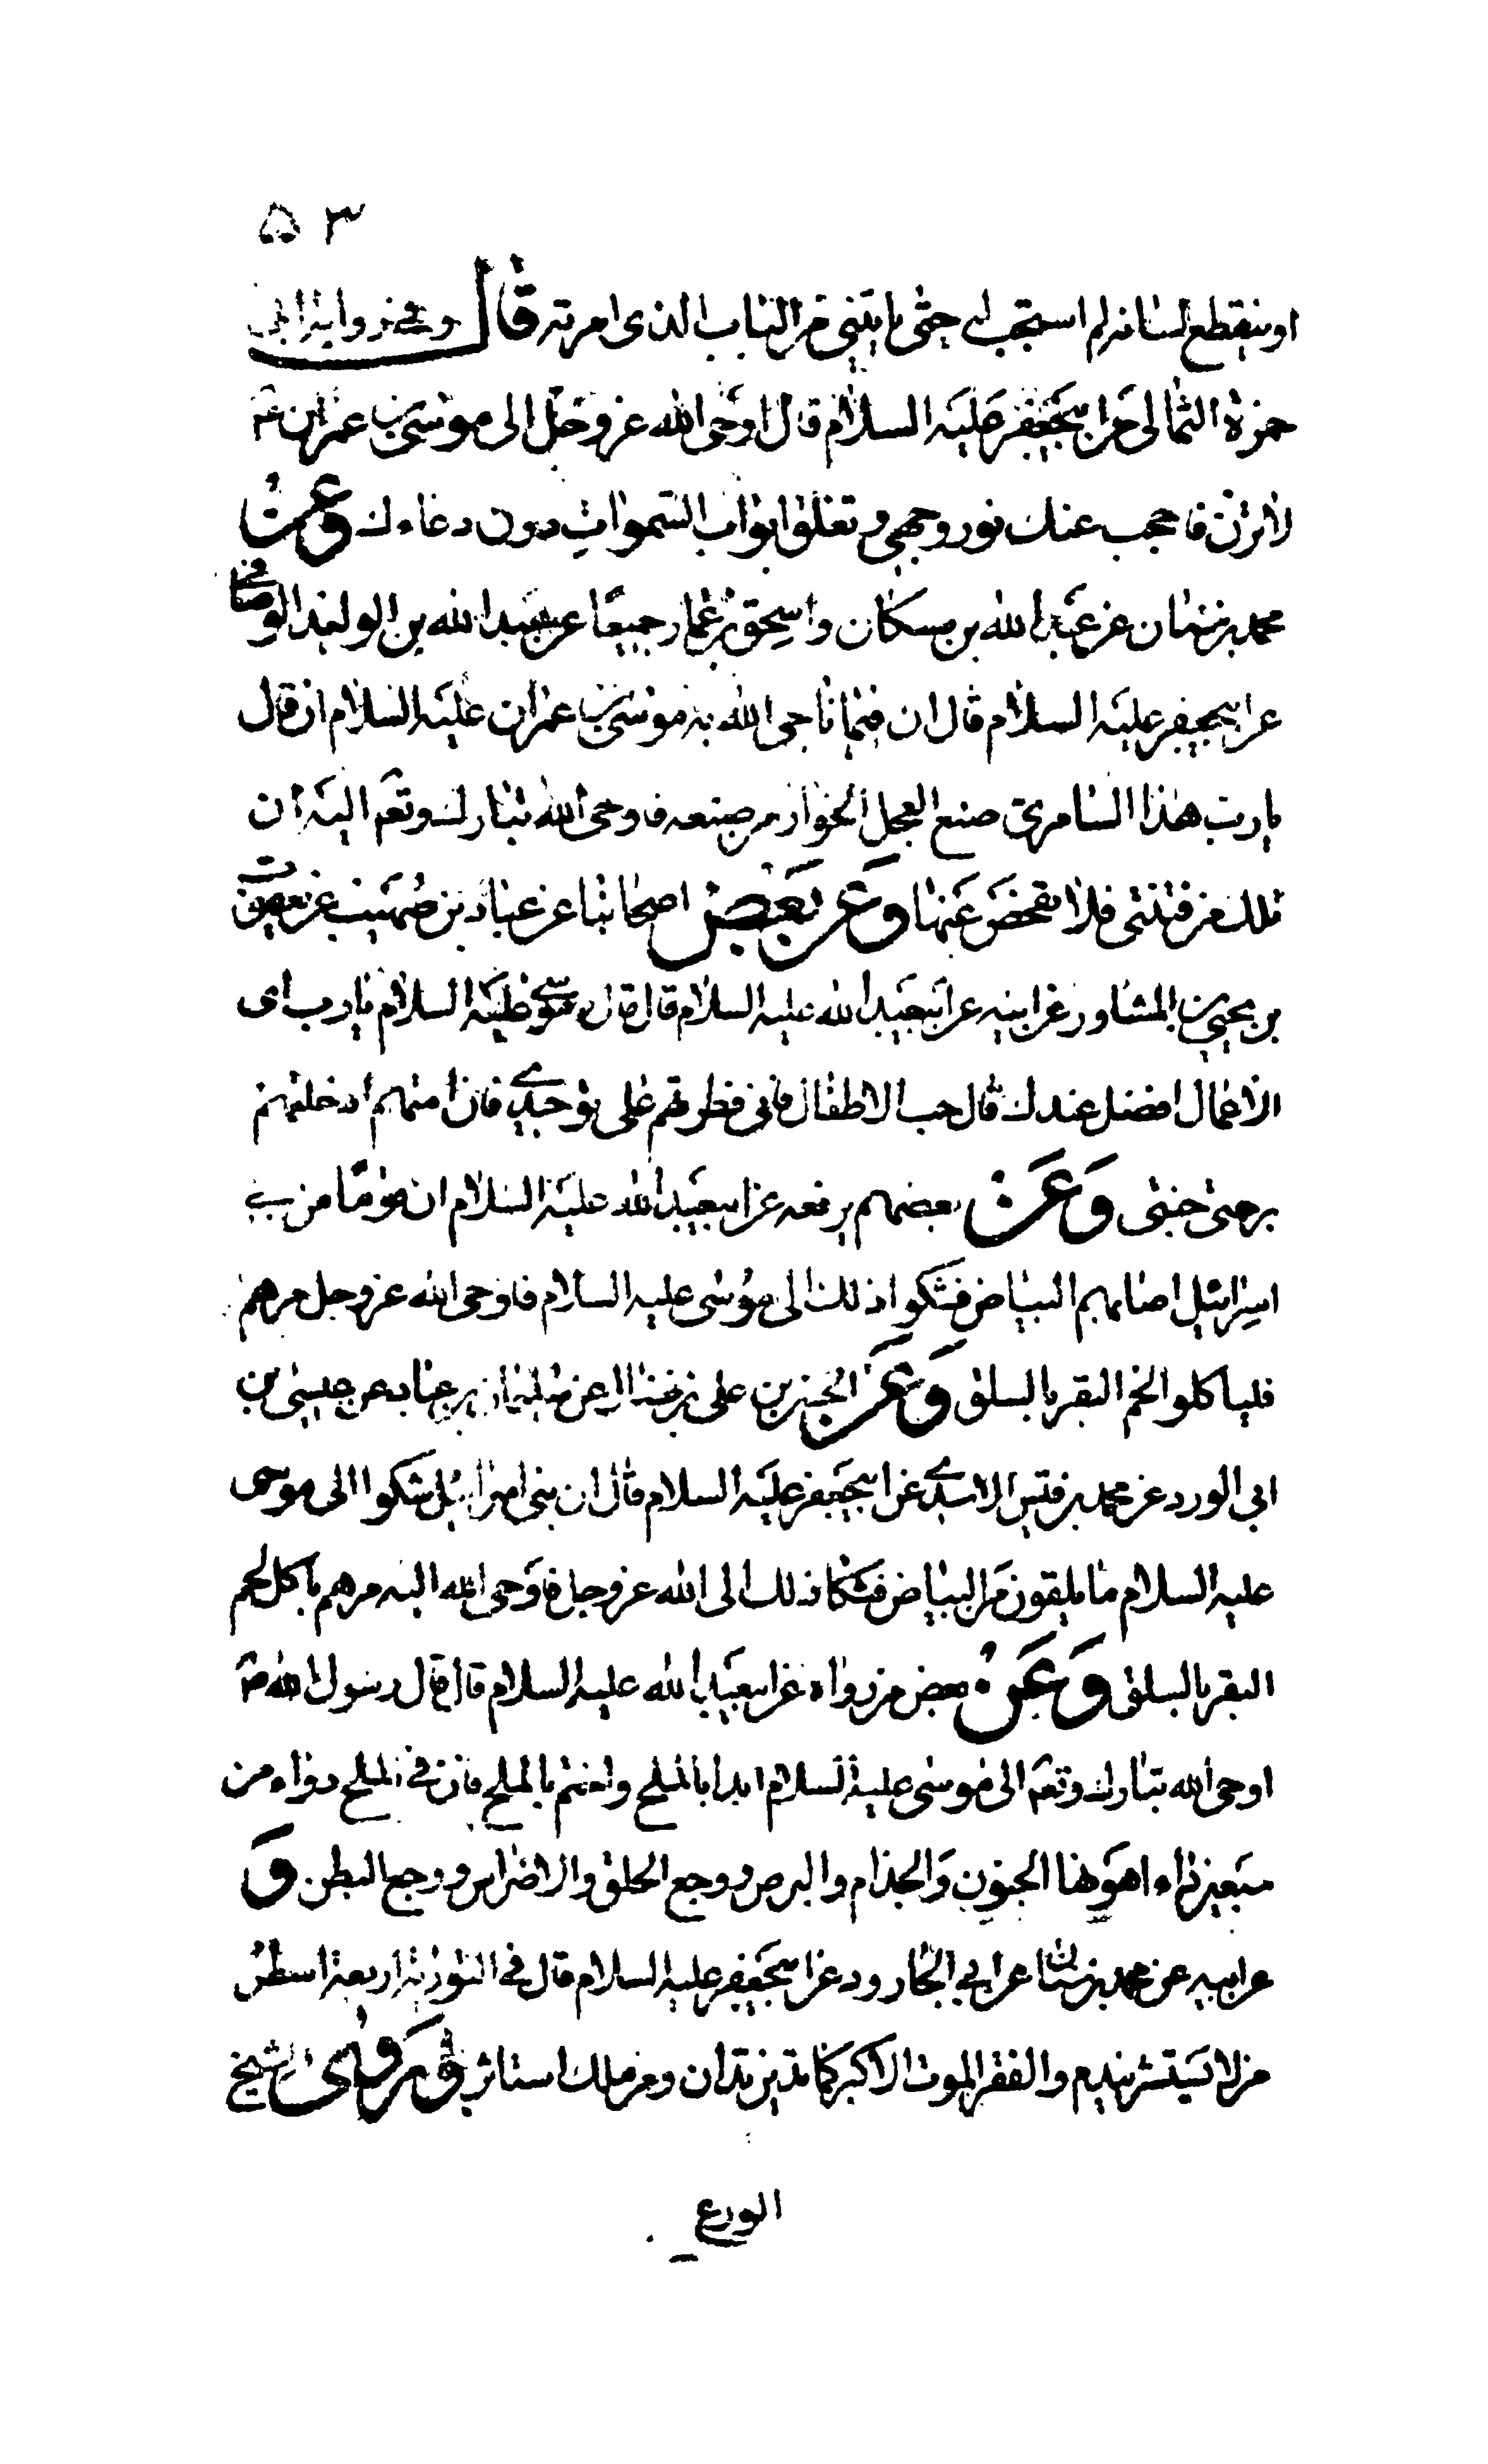 ٥٣
او ينقطع لسانه لم استجب له حتى ياتيني من الباب الذي امرته قال وفي رواية ابي
حمزة الثمالي عن ابيجعفر عليه السلام قال اوحى الله عز وجل الى موسى بن عمران ع
لا تزن فاحجب عنك نور وجهي وتغلق ابواب السموات دون دعاءك وعن
محمد بن سنان عن عبد الله بن مسكان واسحق بن عمار جميعا عن عبيد الله بن الوليد الوصافي
عن ابيجعفر عليه السلام قال ان فيما ناجى الله به موسى بن عمران عليه السلام ان قال
يا رب هذا السامري صنع العجل الخوار من صنعه فاوحى الله تبارك وتعم اليه ان
تلك من فتنتي فلا تفحص عنها وعن بعض اصحابنا عن عباد بن صهيب عن يعقوب
بن يحيى بن المشاور عن ابيه عن ابيعبد الله عليه السلام قال قال موسى عليه السلام يا رب اي
الاعمال افضل عندك قال حب الاطفال فاني فطرتهم على توحيدي فان امتهم ادخلتهم
برحمتي جنتي وعن بعضهم يرفعه عن ابيعبد الله عليه السلام ان قوما من بني
اسرائيل اصابهم البياض فشكوا ذلك الى موسى عليه السلام فاوحى الله عز وجل مرهم
فلياكلوا لحم البقر بالسلق وعن الحسن بن علي بن فضال عن سليمان بن عباد عن عيسى بن
ابي الورد عن محمد بن قيس الاسدي عن ابيجعفر عليه السلام قال ان بني اسرائيل شكوا الى موسى
عليه السلام ما يلقون من البياض فشكا ذلك الى الله عز وجل فاوحى الله اليه مرهم ياكل لحم
البقر بالسلق وعن بعض من رواه عن ابيعبد الله عليه السلام قال قال رسول الله ص
اوحى الله تبارك وتعم الى موسى عليه السلام ابدا بالملح واختم بالملح فان في الملح دواء من
سبعين داء اهونها الجنون والجذام والبرص ووجع الحلق والاضراس ووجع البطن و
عن ابيه عن محمد بن سنان عن ابي الجارود عن ابيجعفر عليه السلام قال في التورية اربعة اسطر
من لا يستشر يندم والفقر الموت الاكبر كما تدين تدان ومن ملك استاثر وروى الشيخ
الورع